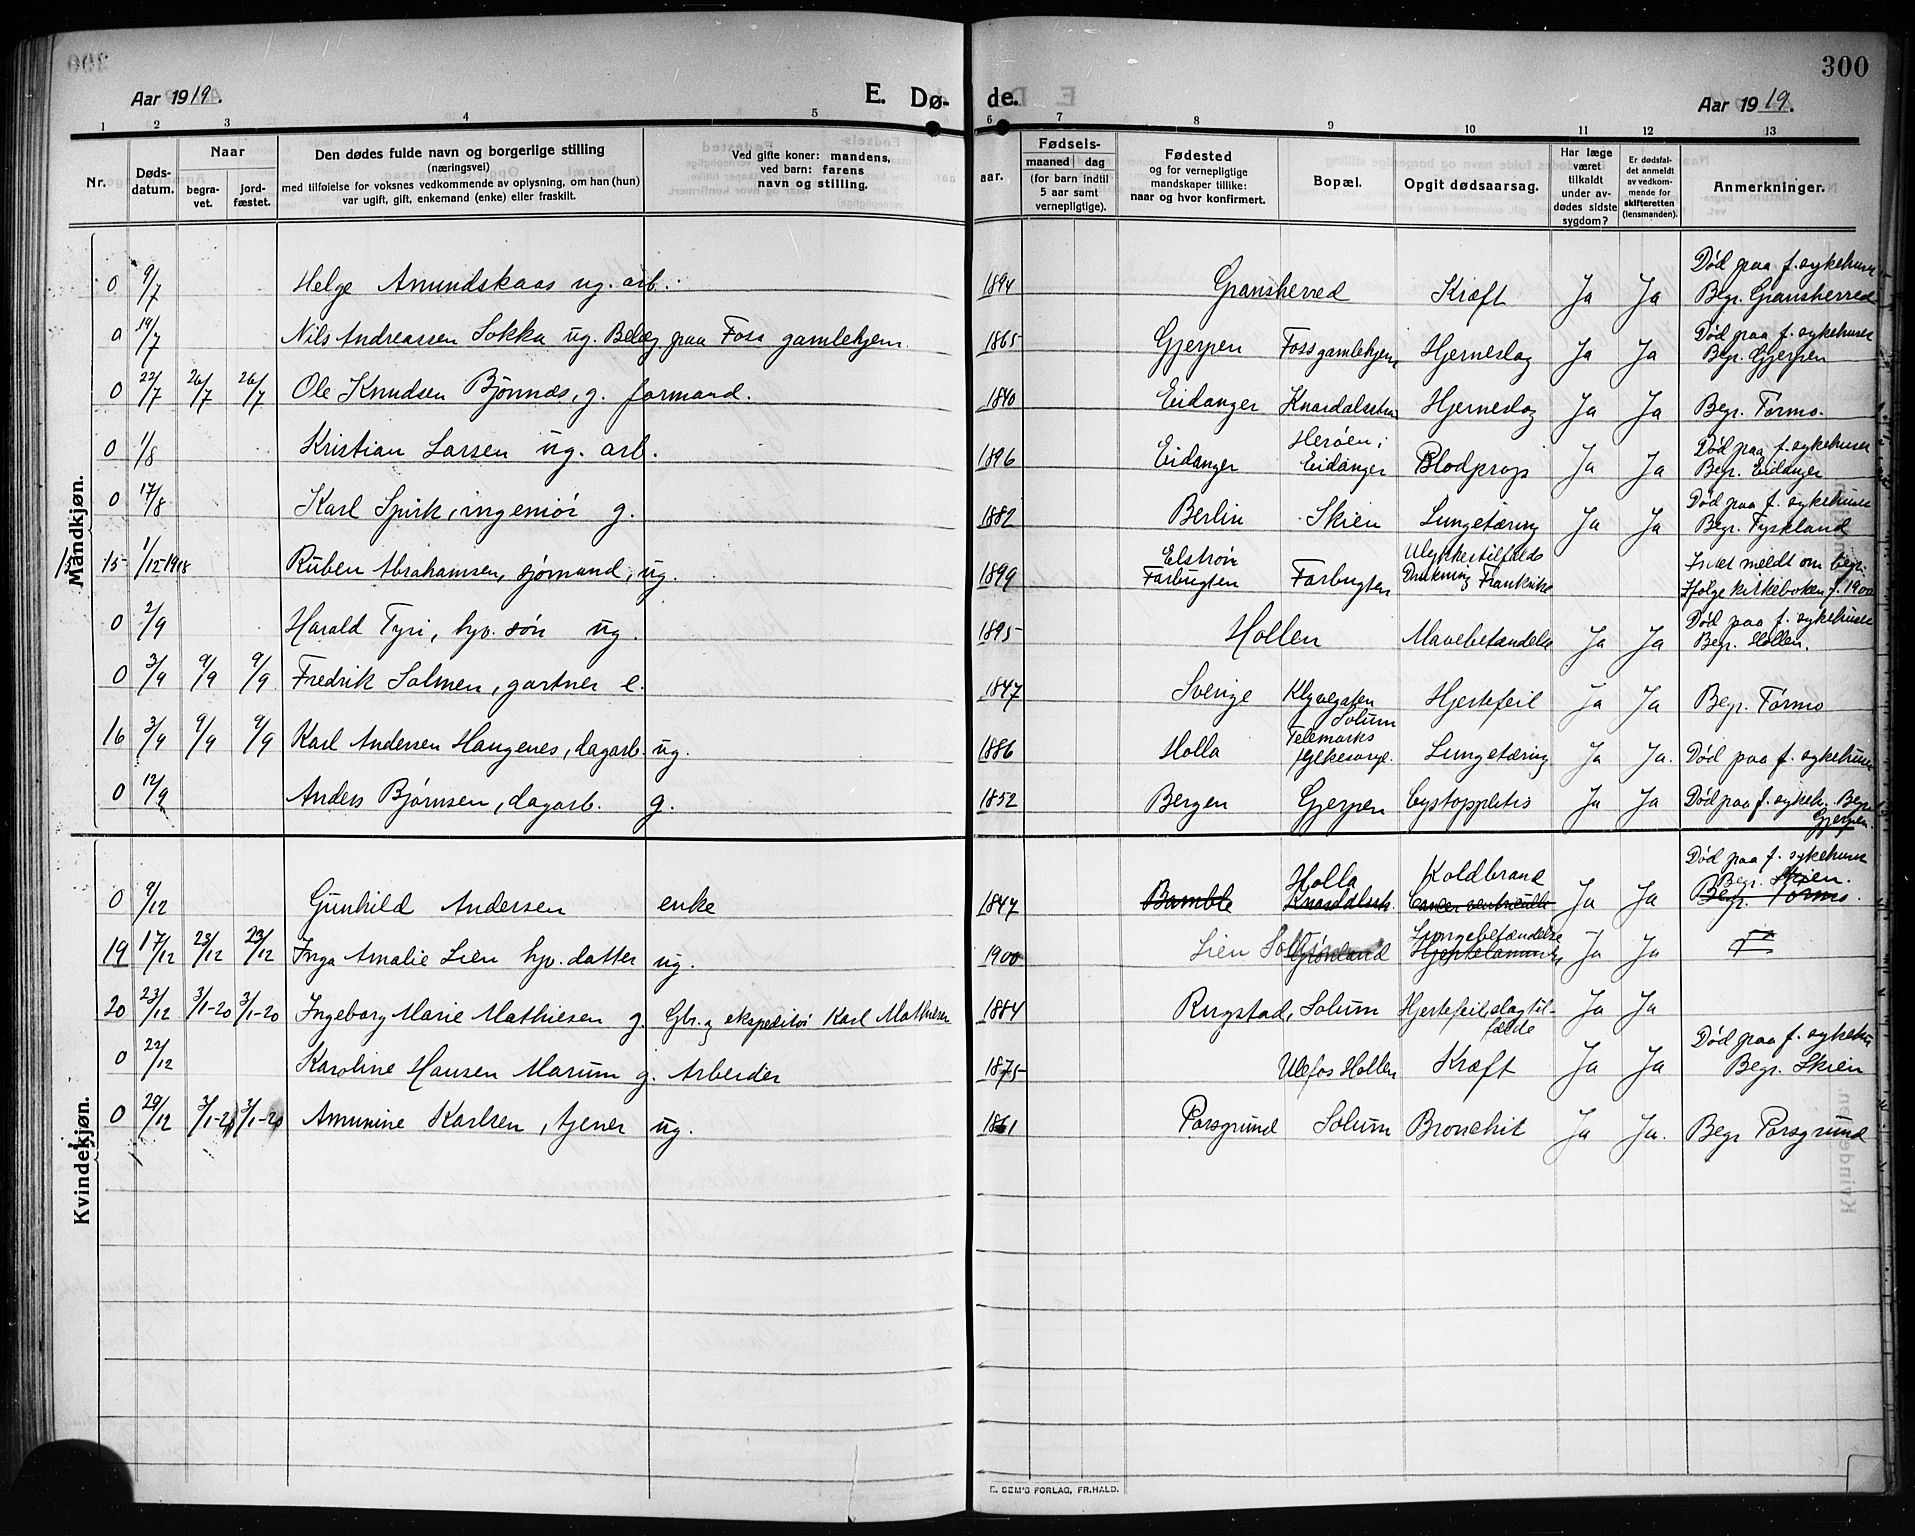 300
Aar 1919.
E. Dø-
de.
Aar 1919.
1 2 3 4 5 6 7 8 9 10 11 12 13
Nr.
Døds-
datum.
Naar
begra-
vet.
jord-
fæstet.
Den dødes fulde navn og borgerlige stilling
(næringsvei)
med tilføielse for voksnes vedkommende av oplysning, om han (hun)
var ugift, gift, enkemand (enke) eller fraskilt.
Ved gifte koner: mandens,
ved barn: farens
navn og stilling.
aar.
Fødsels-
maaned dag
(for barn indtil
5 aar samt
vernepligtige).
Fødested
og for vernepligtige
mandskaper tillike:
naar og hvor konfirmert.
Bopæl.
Opgit dødsaarsag.
Har læge
været
tilkaldt
under av-
dødes sidste
sygdom?
Er dødsfal-
det anmeldt
av vedkom-
mende for
skifteretten
(lensmanden).
Anmerkninger.
Mandkjøn.
0 9/7 Helge Amundskaas ug. arb. 1894 Gransherred Kræft Ja Ja Død paa f. sykehuset
Begr. Gransherred
0 19/7 Nils Andreassen Sokka ug. Belæg paa Foss gamlehjem. 1865 Gjerpen Foss gamlehjem Hjerneslag Ja Ja Død paa f. sykehuset
Begr. Gjerpen
0 22/7 26/7 26/7 Ole Knudsen Bjønnæs, g. formand. 1840 Eidanger Knardalsstrand Hjerneslag Ja Ja Begr. Førmo.
0 1/8 Kristian Larsen ug. arb. 1896 Eidanger Herøen i
Eidanger Blodprop Ja Ja Død paa f. sykehuset
Begr. Eidanger
0 17/8 Karl Spirk, ingeniør g. 1882 Berlin Skien Lungetæring Ja Ja Død paa f. sykehuset
Begr. Tyskland
15 15 1/12-1918 Ruben Abrahamsen, sjømand, ug. 1899 Elstrøn
Farbugten Farbugten Ulykkestilfælde
Drukning Frankrike Intet meldt om begr.
Ifølge kirkeboken f. 1900
0 2/9 Harald Tyri, hp. søn ug. 1895 Hollen Mavebetændelse Ja Ja Død paa f. sykehuset
Begr. Hollen.
0 3/9 9/9 9/9 Fredrik Solmen, gartner e. 1847 Sverige Klyvegaten
Solum Hjertefeil Ja Ja Begr. Førmo
16 3/9 9/9 9/9 Karl Andersen Haugenes, dagarb. ug. 1886 Holla Telemarks
fylkessyge. Lungetæring Ja Ja. Død paa f. sykehuset
0 12/9 Anders Bjørnsen, dagarb. g. 1852 Bergen Gjerpen Ja Ja Død paa f. sykeh. Begr.
Gjerpen.
Kvindekjøn.
0 9/12 Gunhild Andersen enke 1847 Bamble Holla
Knardalsstr. Koldbrand
Cancer ventriculi Ja Ja Død paa f. sykehuset
Begr. Skien.
Begr. Førmo.
19 17/12 23/12 23/12 Inga Amalie Lien hp. datter ug. 1900 Lien Grønland Lungebetændelse
Hjertelammelse Ja Ja
20 23/12 3/1-20 3/1-20 Ingeborg Marie Mathiesen g. Gbr. og ekspeditør Karl Mathiesen 1884 Rugstad, Solum Hjertefeil, slagtil-
fælde Ja Ja
0 22/12 Karoline Hansen Marum g. Arbeider 1875 Ulefos Hollen Kræft Ja Ja Død paa f. sykehus
Begr. Skien
0 29/12 3/1-20 3/1-20 Amunine Karlsen, tjener ug. 1861 Porsgrund Solum Bronchit Ja Ja. Begr Porsgrund
E. SEM'S FORLAG, FR.HALD.